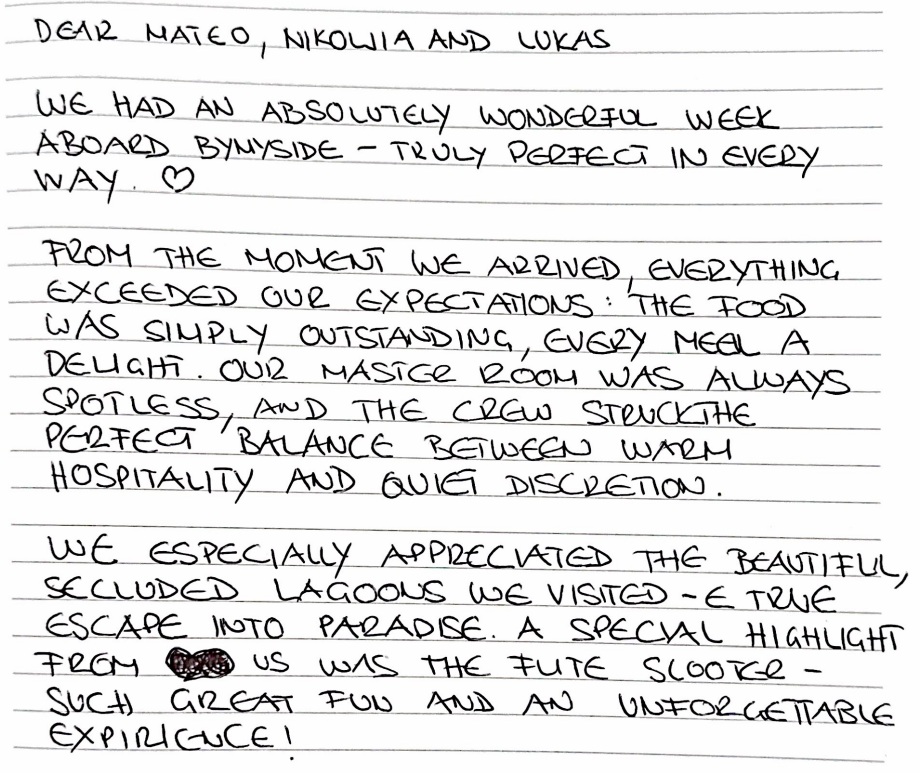 DEAR MATEO, NIKOLIJA AND LUKAS
WE HAD AN ABSOLUTELY WONDERFUL WEEK
ABOARD BYMYSIDE – TRULY PERFECT IN EVERY
WAY. ♡
FROM THE MOMENT WE ARRIVED, EVERYTHING
EXCEEDED OUR EXPECTATIONS: THE FOOD
WAS SIMPLY OUTSTANDING, EVERY MEEL A
DELIGHT. OUR MASTER ROOM WAS ALWAYS
SPOTLESS, AND THE CREW STRUCKTHE
PERFECT BALANCE BETWEEN WARM
HOSPITALITY AND QUIET DISCRETION.
WE ESPECIALLY APPRECIATED THE BEAUTIFUL,
SECLUDED LAGOONS WE VISITED – E TRUE
ESCAPE INTO PARADISE. A SPECIAL HIGHLIGHT
FROM US WAS THE FLITE SCOOTER –
SUCH GREAT FUN AND AN UNFORGETTABLE
EXPIRIENCE!